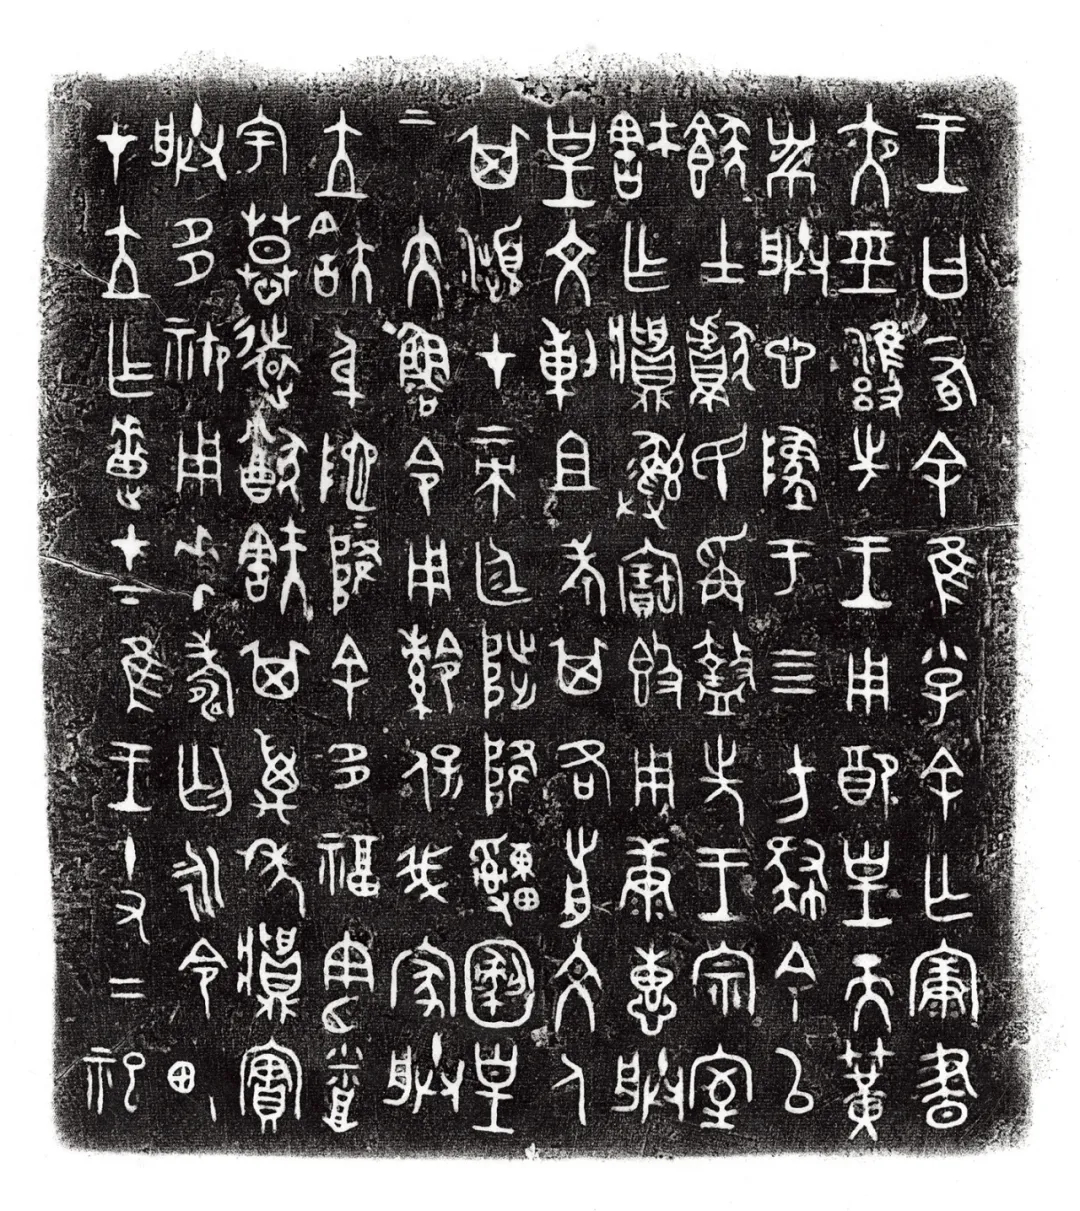 王曰有余隹小子余亡康晝
夜巠雝先王用配皇天簧
黹朕心墜于四方肆余以
𩛥士獻民爯盩先王宗室
㝬乍𩰫彝寶𣪘用康惠朕
皇文剌且考其各前文人
其瀕才帝廷陟降𤕌圝皇
帝大魯令用𩛩保我家朕
立㝬身阤=降余多福憲烝
宇慕遠猷㝬其萬年𩰫實
朕多御用𠦪壽匃永令畯
才立乍疐才下隹王十又二祀